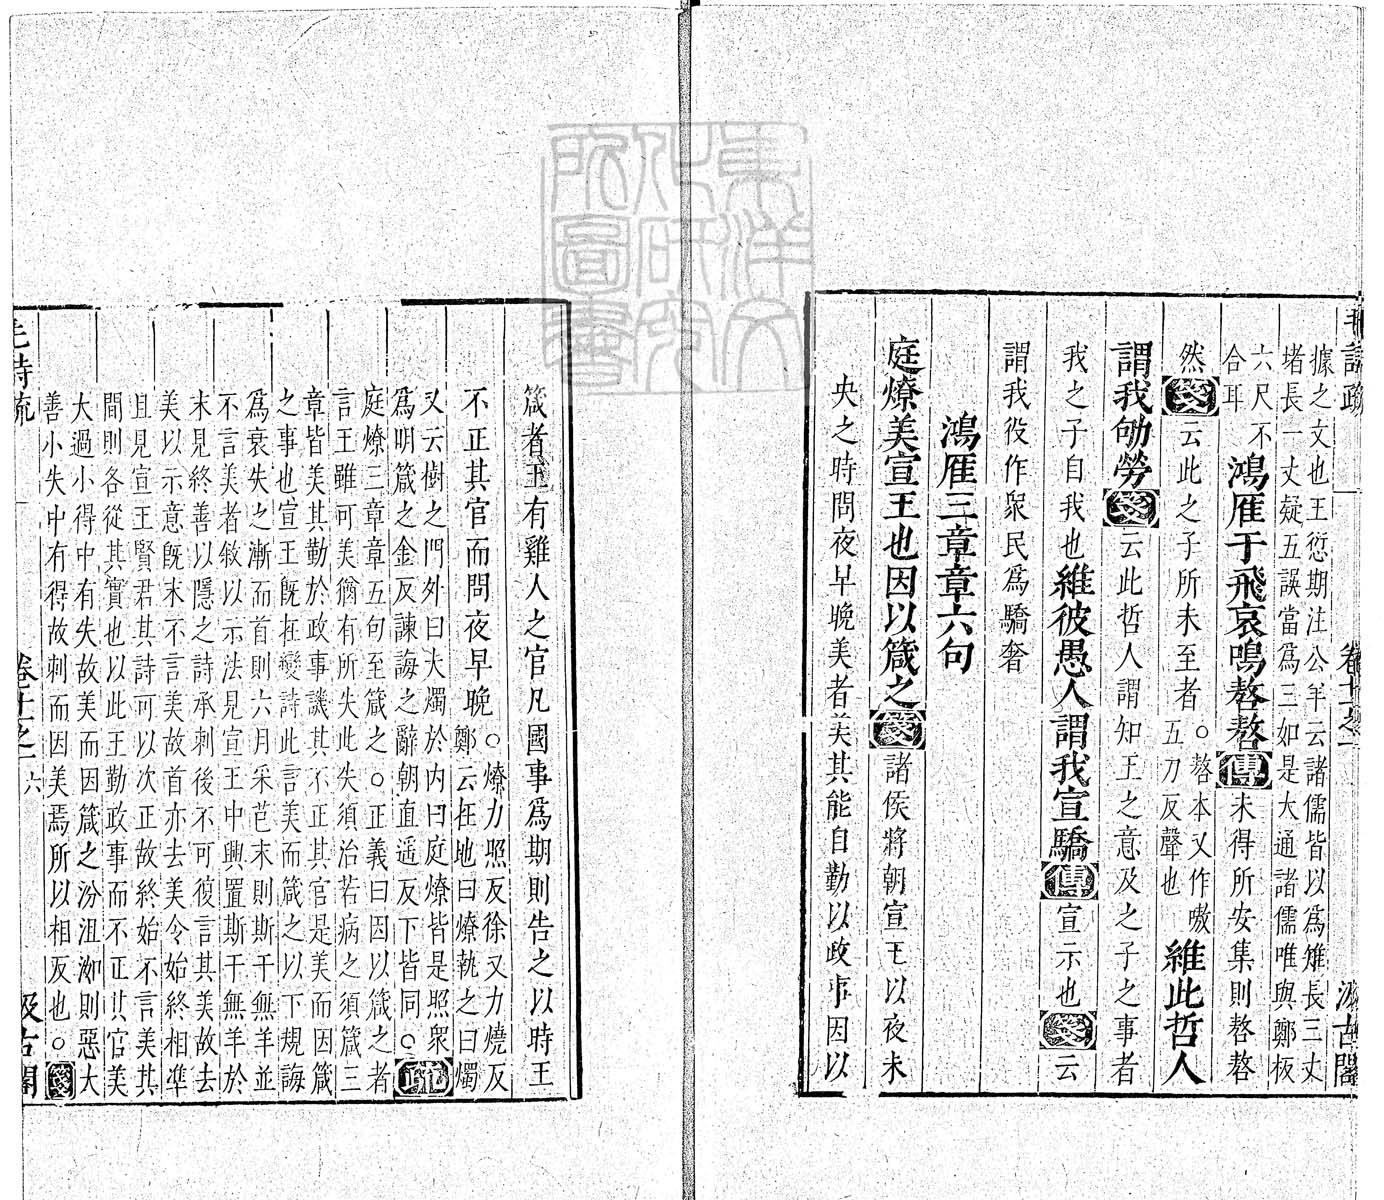 據之文也王愆期注公羊云諸儒皆以為雉長三丈
堵長一丈疑五誤當為三如是大通諸儒唯與鄭板
六尺不
合耳
鴻雁于飛哀鳴嗸嗸傳未得所安集則嗸嗸
然箋云此之子所未至者○嗸本又作嗷
五刀反聲也
維此哲人
謂我劬勞箋云此哲人謂知王之意及之子之事者
我之子自我也維彼愚人謂我宣驕傳宣示也箋云
謂我役作衆民爲驕奢
鴻雁三章章六句
庭燎美宣王也因以箴之箋諸侯將朝宣王以夜未
央之時問夜早晚美者美其能自勤以政事因以
箴者王有雞人之官凡國事爲期則告之以時王
不正其官而問夜早晚○燎力照反徐又力燒反
鄭云在地曰燎執之曰燭
又云樹之門外曰大燭於内曰庭燎皆是照衆
爲明箴之金反諫誨之辭朝直遥反下皆同○疏
庭燎三章章五句至箴之○正義曰因以箴之者
言王雖可美猶有所失此失須治若病之須箴三
章皆美其勤於政事譏其不正其官是美而因箴
之事也宣王既在變詩此言美而箴之以下規誨
爲衰失之漸而首則六月采芑末則斯干無羊並
不言美者敘以示法見宣王中興置斯干無羊於
末見終善以隱之詩承刺後不可復言其美故去
美以示意既末不言美故首亦去美令始終相準
且見宣王賢君其詩可以次正故終始不言美其
間則各從其實也以此王勤政事而不正其官美
大過小得中有失故美而因箴之汾沮洳則惡大
善小失中有得故刺而因美焉所以相反也○箋
毛詩疏 卷十一之一 六 汲古閣